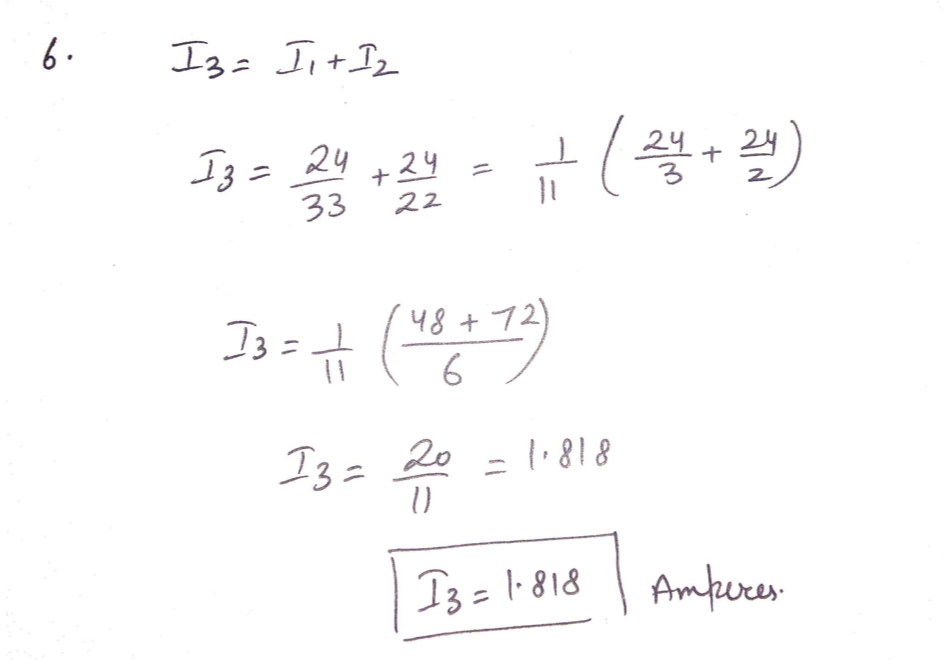 6. I₃ = I₁ + I₂
I₃ = 24/33 + 24/22 = 1/11 (24/3 + 24/2)
I₃ = 1/11 (48 + 72 / 6)
I₃ = 20/11 = 1.818
I₃ = 1.818 Amperes.